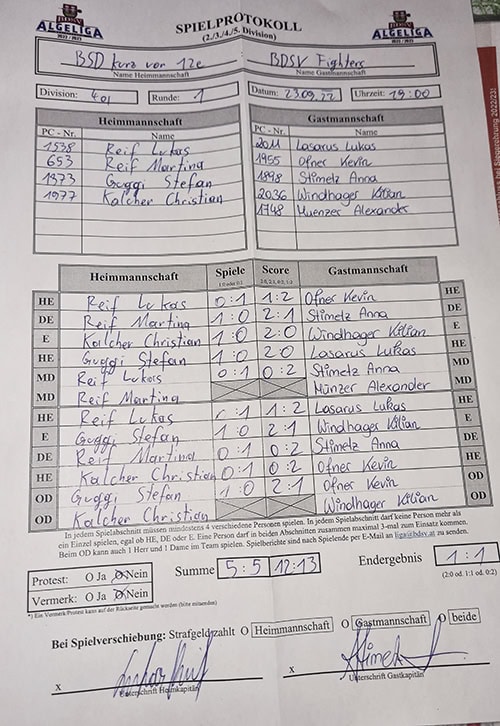 BDSV
ALGELIGA
2022 / 2023
SPIELPROTOKOLL
(2./3./4./5. Division)
BDSV
ALGELIGA
2022 / 2023
BSD kurz vor 12e BDSV Fighters
Name Heimmannschaft Name Gastmannschaft
Division: Runde: 1 Datum: 23.09.22 Uhrzeit: 19:00
Heimmannschaft Gastmannschaft
PC - Nr. Name PC - Nr. Name
1538 Reif Lukas 2011 Lasarus Lukas
653 Reif Martina 1955 Ofner Kevin
1373 Guggi Stefan 1898 Stimetz Anna
1977 Kalcher Christian 2036 Windhager Kilian
1748 Muenzer Alexander
Heimmannschaft Spiele Score Gastmannschaft
HE Reif Lukas 0:1 1:2 Ofner Kevin HE
DE Reif Martina 1:0 2:1 Stimetz Anna DE
E Kalcher Christian 1:0 2:0 Windhager Kilian E
HE Guggi Stefan 1:0 2:0 Lasarus Lukas HE
MD Reif Lukas 0:1 0:2 Stimetz Anna MD
MD Reif Martina Münzer Alexander MD
HE Reif Lukas 0:1 1:2 Lasarus Lukas HE
E Guggi Stefan 1:0 2:1 Windhager Kilian E
DE Reif Martina 0:1 0:2 Stimetz Anna DE
HE Kalcher Christian 0:1 0:2 Ofner Kevin HE
OD Guggi Stefan 1:0 2:1 Ofner Kevin OD
OD Kalcher Christian Windhager Kilian OD
In jedem Spielabschnitt müssen mindestens 4 verschiedene Personen spielen. In jedem Spielabschnitt darf keine Person mehr als
ein Einzel spielen, egal ob HE, DE oder E. Eine Person darf in beiden Abschnitten zusammen maximal 3-mal zum Einsatz kommen.
Beim OD kann auch 1 Herr und 1 Dame im Team spielen. Spielberichte sind nach Spielende per E-Mail an liga@bdsv.at zu senden.
Protest: O Ja O Nein Summe 5:5 12:13 Endergebnis 1:1
Vermerk: O Ja O Nein (2:0 od. 1:1 od. 0:2)
*) Ein Vermerk/Protest kann auf der Rückseite gemacht werden (bitte mitsenden)
Bei Spielverschiebung: Strafgeld zahlt O Heimmannschaft O Gastmannschaft O beide
x x
Unterschrift Heimkapitän Unterschrift Gastkapitän